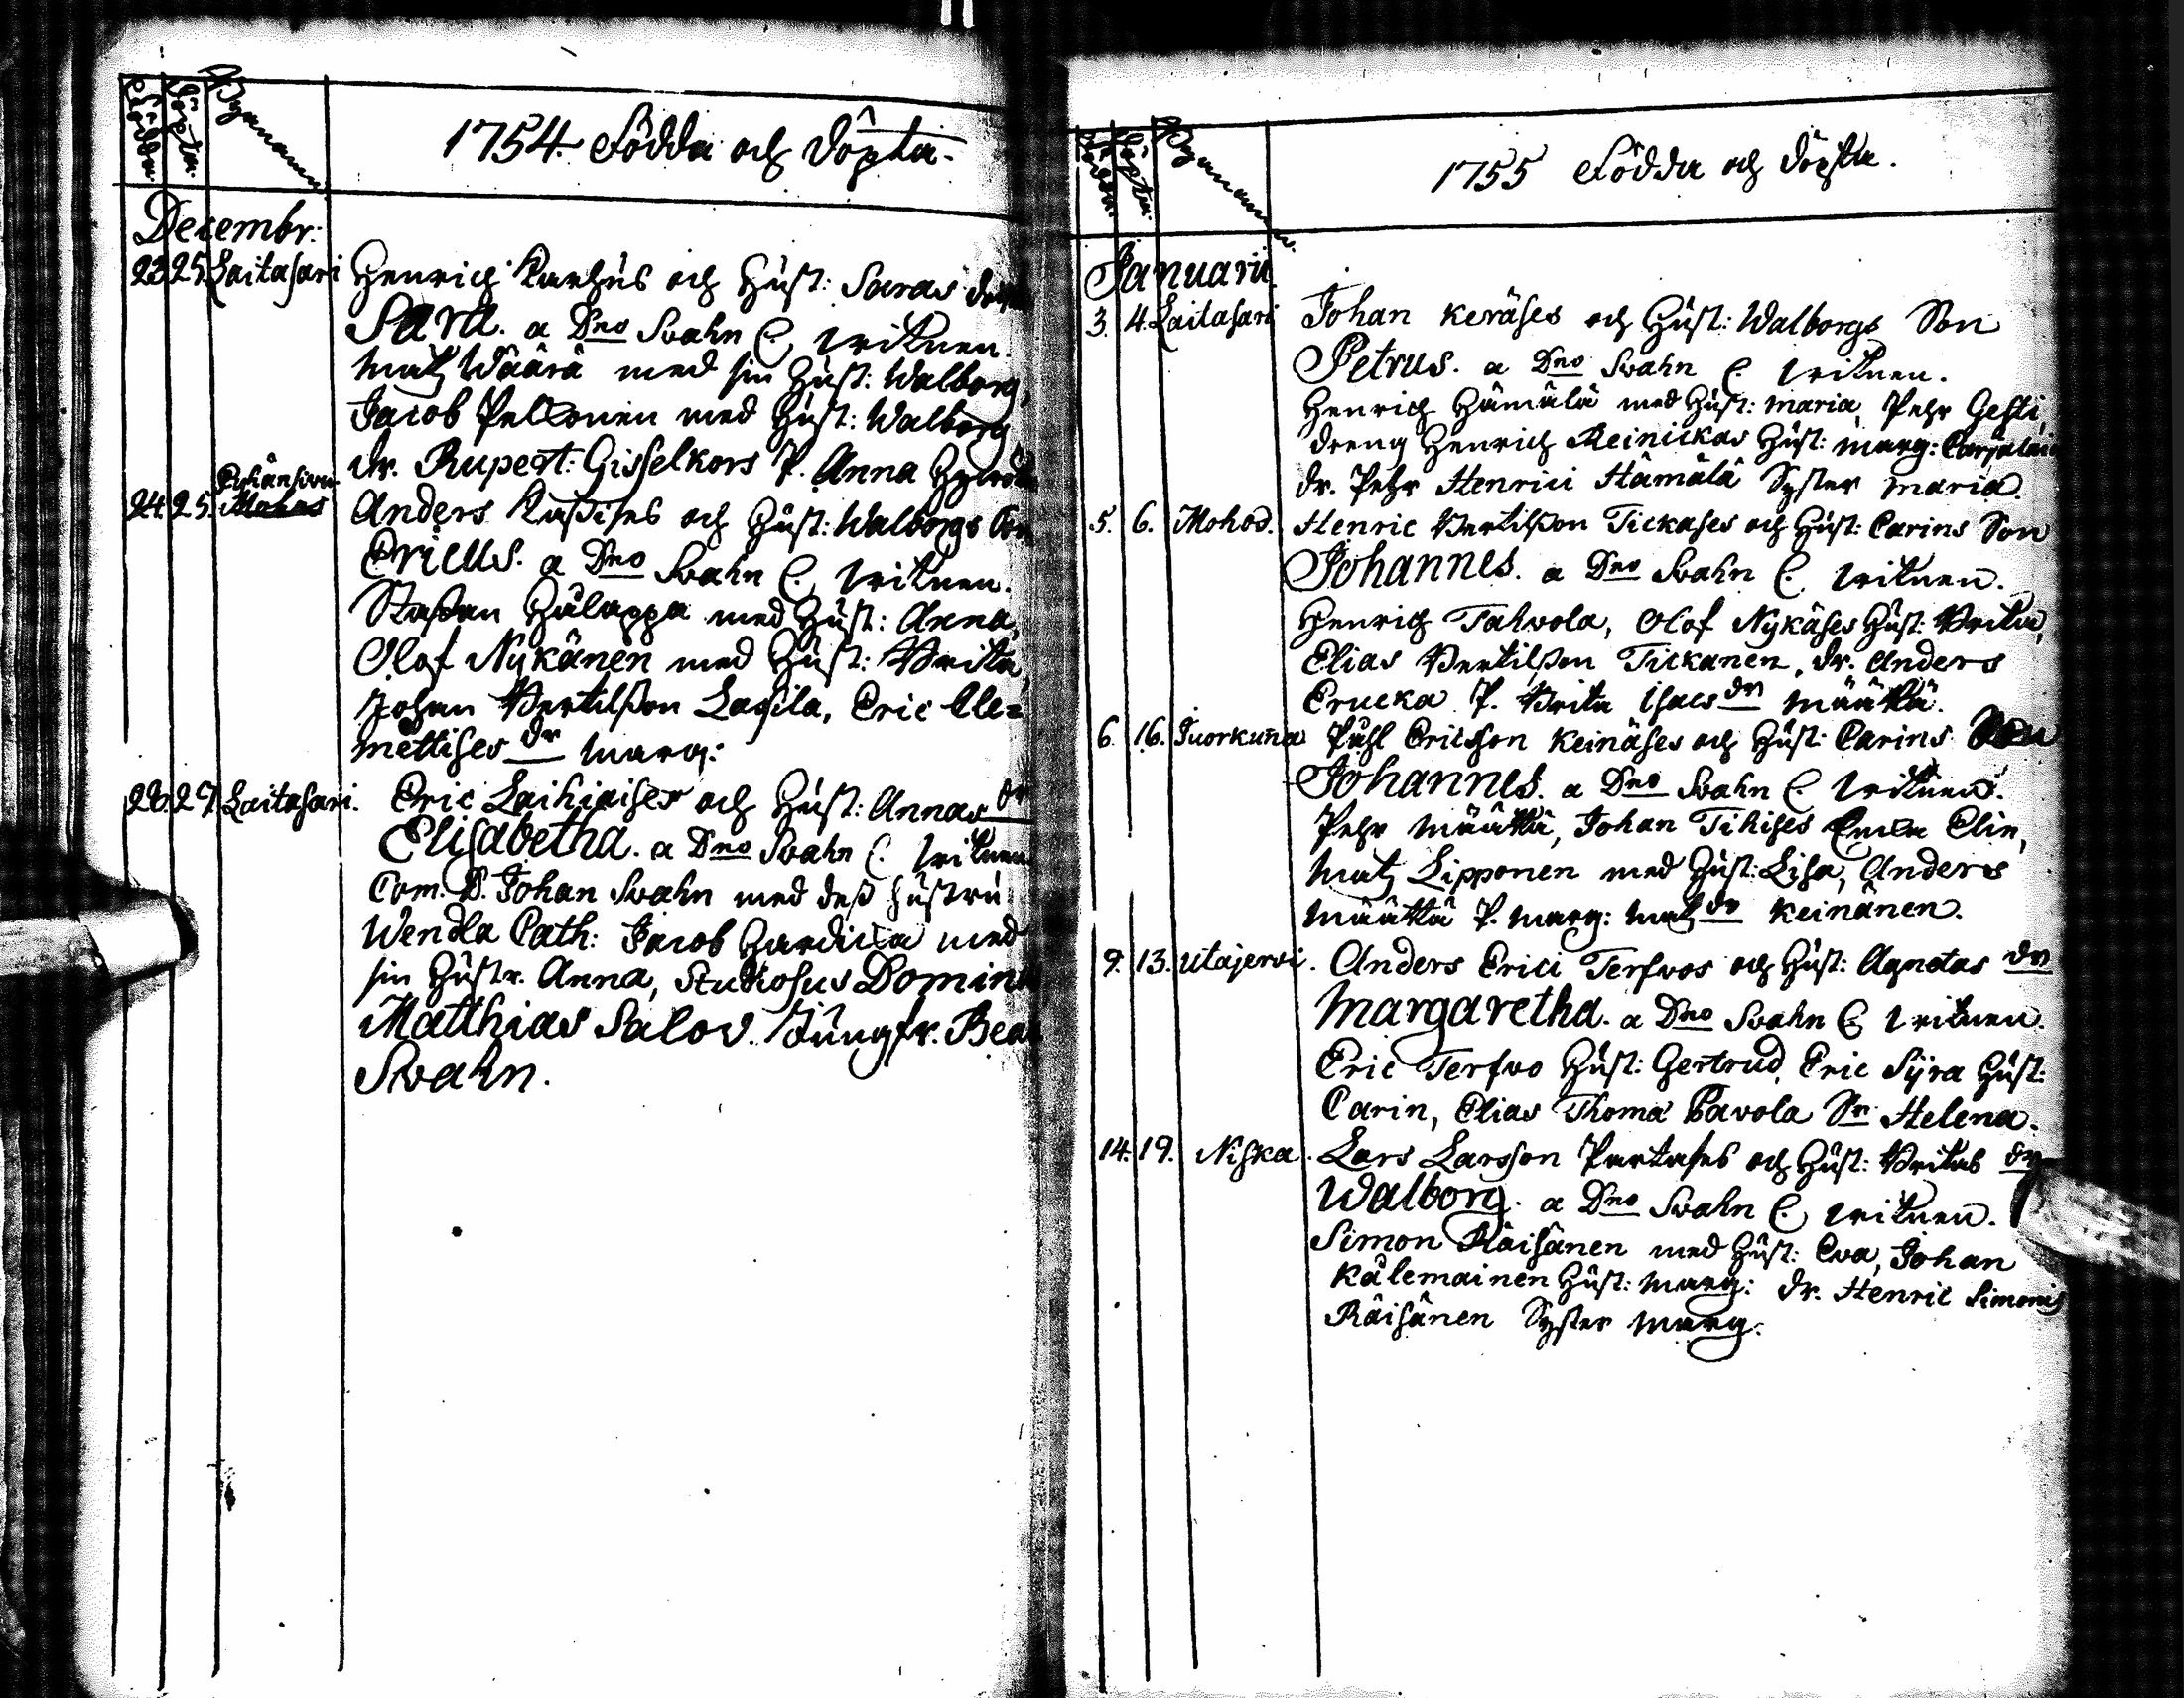 Födda. Döpta. Bynamn.
1754. Födda och Döpta.
Decembr:
23. 25. Laitasari Henrich Karhus och Hust: Saras dotter
Sara. a Dno Svahn C. vitnen.
Matz Wäärä med sin Hust: Walborg,
Jacob Pellonen med Hust: Walborg
dr. Rupert: Gisselkors P. Anna
Pyhänsivu
24. 25. Mohos Anders Kassises och Hust: Walborgs Son
Ericus. a Dno Svahn C. vitnen.
Staffan Hulappa med Hust: Anna,
Olof Nykänen med Hust: Brita,
Johan Bertilsson Lassila, Eric Cle=
mettises dr Marg:
26. 27. Laitasari. Eric Laihiaises och Hust: Annas dr
Elisabetha. a Dno Svahn C. vitnen
Com. D. Johan Svahn med dess hustru
Wendla Cath: Jacob Hardicka med
sin Hustr. Anna, Studiosus Dominus
Matthias Salov. Jungfr. Beat
Svahn.
Födda. Döpta. Bynamn.
1755 Födda och Döpta.
Januarii.
3. 4. Laitasari Johan Keräses och Hust: Walborgs Son
Petrus. a Dno Svahn C. vitnen.
Henrich Hämälä med Hust: Maria, Pehr Gesti,
dreng Henrich Reinickas Hust: Marg: Carjalain
dr. Pehr Henrici Hämälä Syster Maria.
5. 6. Mohos. Henric Bertilsson Tickases och Hust: Carins Son
Johannes. a Dno Svahn C. vitnen.
Henrich Tahvola, Olof Nykäses Hust: Brita,
Elias Bertilsson Tickanen, dr. Anders
Crucka P. Brita Isacs dr Määttä.
6. 16. Juorkuna Påhl Ericsson Keinäses och Hust: Carins Son
Johannes. a Dno Svahn C. vitnen.
Pehr Määttä, Johan Tihises Enka Elin,
Matz Lipponen med Hust: Lisa, Anders
Määttä P. Marg: Matz dr Keinänen.
9. 13. Utajervi. Anders Erici Terfvos och Hust: Agnetas dr
Margaretha. a Dno Svahn C. vitnen.
Eric Terfvo Hust: Gertrud, Eric Syra Hust:
Carin, Elias Thomæ Pavola Sr Helena.
14. 19. Niska. Lars Larsson Partases och Hust: Britas dr
Walborg. a Dno Svahn C. vitnen.
Simon Räisänen med Hust: Eva, Johan
Kälemainen Hust: Marg: dr. Henric Simonis
Räisänen Syster Marg.